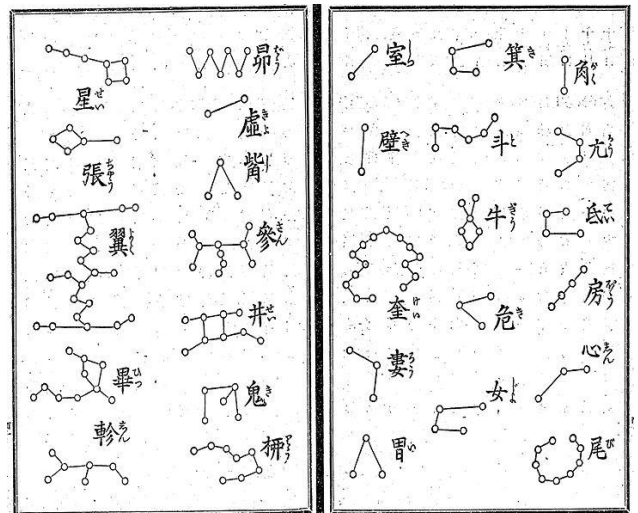 角 かく
亢 かう
氐 てい
房 ばう
心 しん
尾 び
箕 き
斗 と
牛 ぎう
危 き
女 ぢよ
室 しつ
壁 へき
奎 けい
婁 ろう
胃 い
昴 ばう
虛 きよ
觜 し
參 さん
井 せい
鬼 き
柳 りう
星 せい
張 ちやう
翼 よく
畢 ひつ
軫 しん